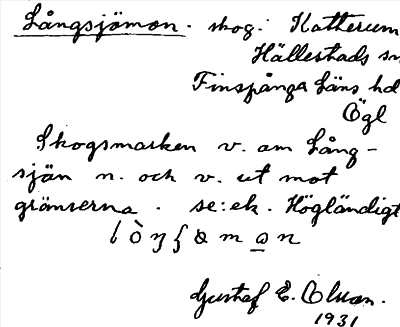 Långsjömon. skog. Katterum
Hällestads sn
Finspånga Läns hd
Ögl
Skogsmarken v. om Lång-
sjän n. och v. ut mot
gränserna. se: ek. Högländigt
Gustaf E. Olson.
1931